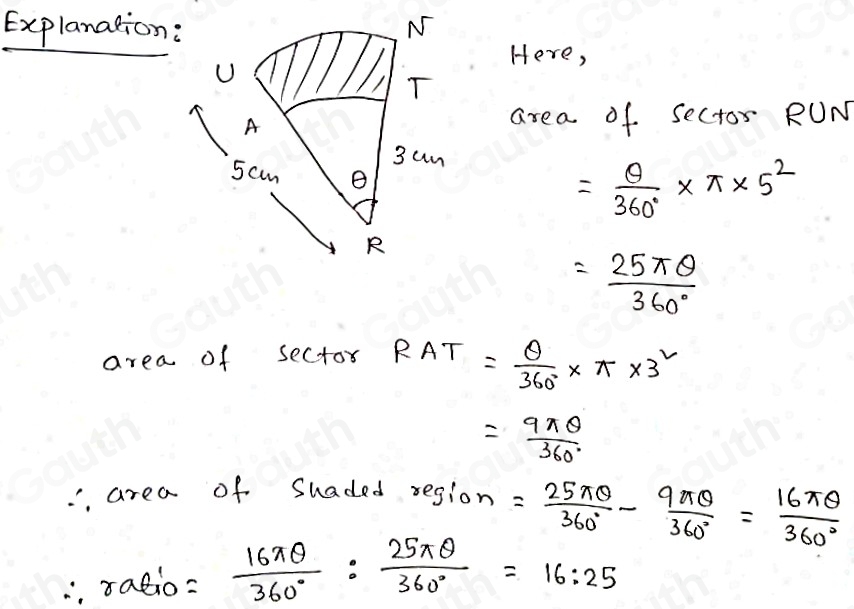 Explanation:
N
U
T
A
3 cm
5cm
θ
R
Here,
area of sector RUN
= θ/360° × π × 5²
= 25πθ/360°
area of sector RAT = θ/360° × π × 3²
= 9πθ/360°
∴ area of shaded region = 25πθ/360° - 9πθ/360° = 16πθ/360°
∴ ratio = 16πθ/360° : 25πθ/360° = 16:25
Gauth